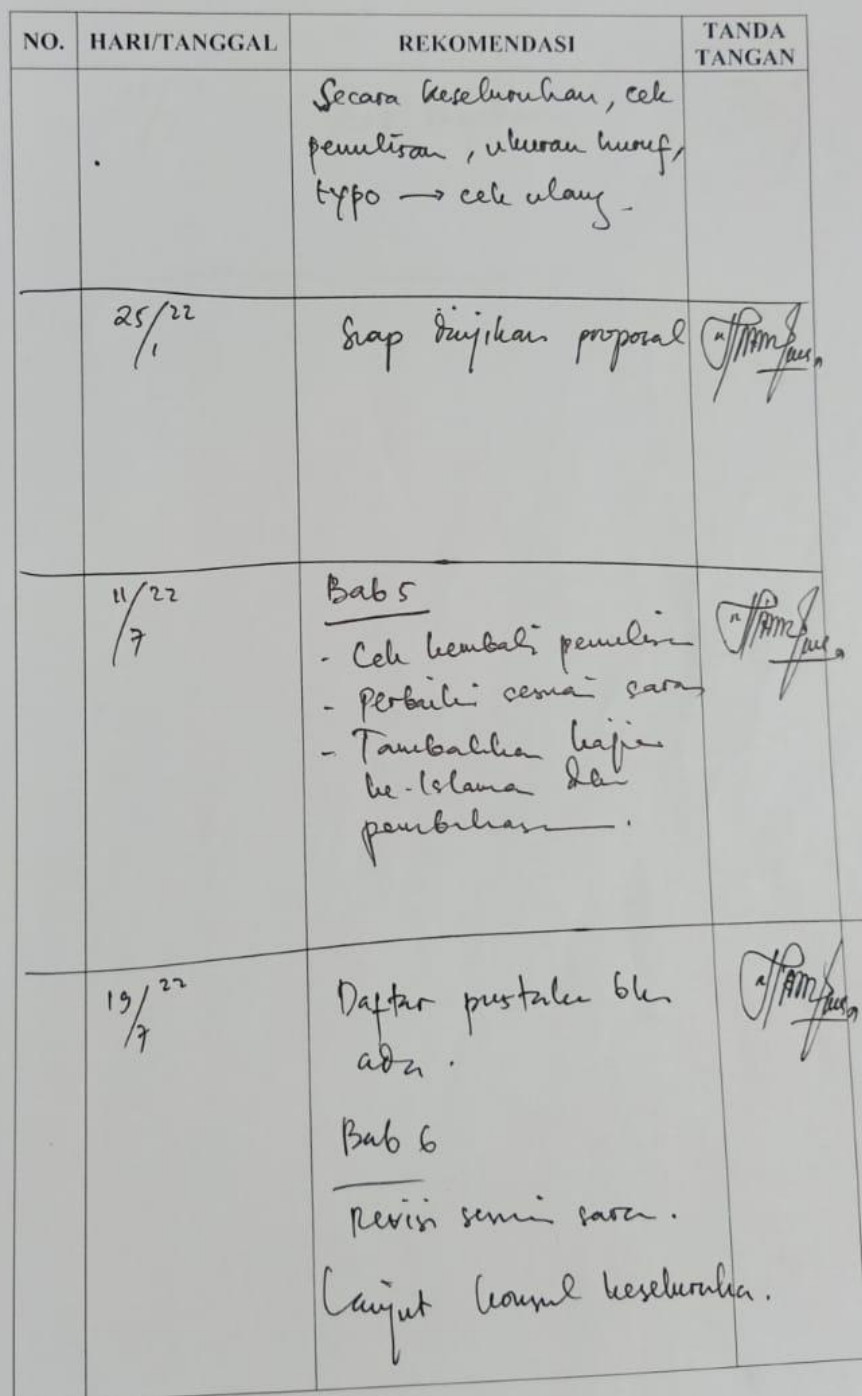 NO. HARI/TANGGAL REKOMENDASI TANDA TANGAN
Secara keseluruhan, cek
penulisan, ukuran huruf,
typo → cek ulang
25/1 22 Siap diujikan proposal
11/7 22 Bab 5
- Cek kembali penulisan
- Perbaiki sesuai saran
- Tambahkan kajian
ke-Islaman dlm
pembahasan.
19/7 22 Daftar pustaka blm
ada.
Bab 6
Revisi sesuai saran.
Lanjut konsul keseluruhan.